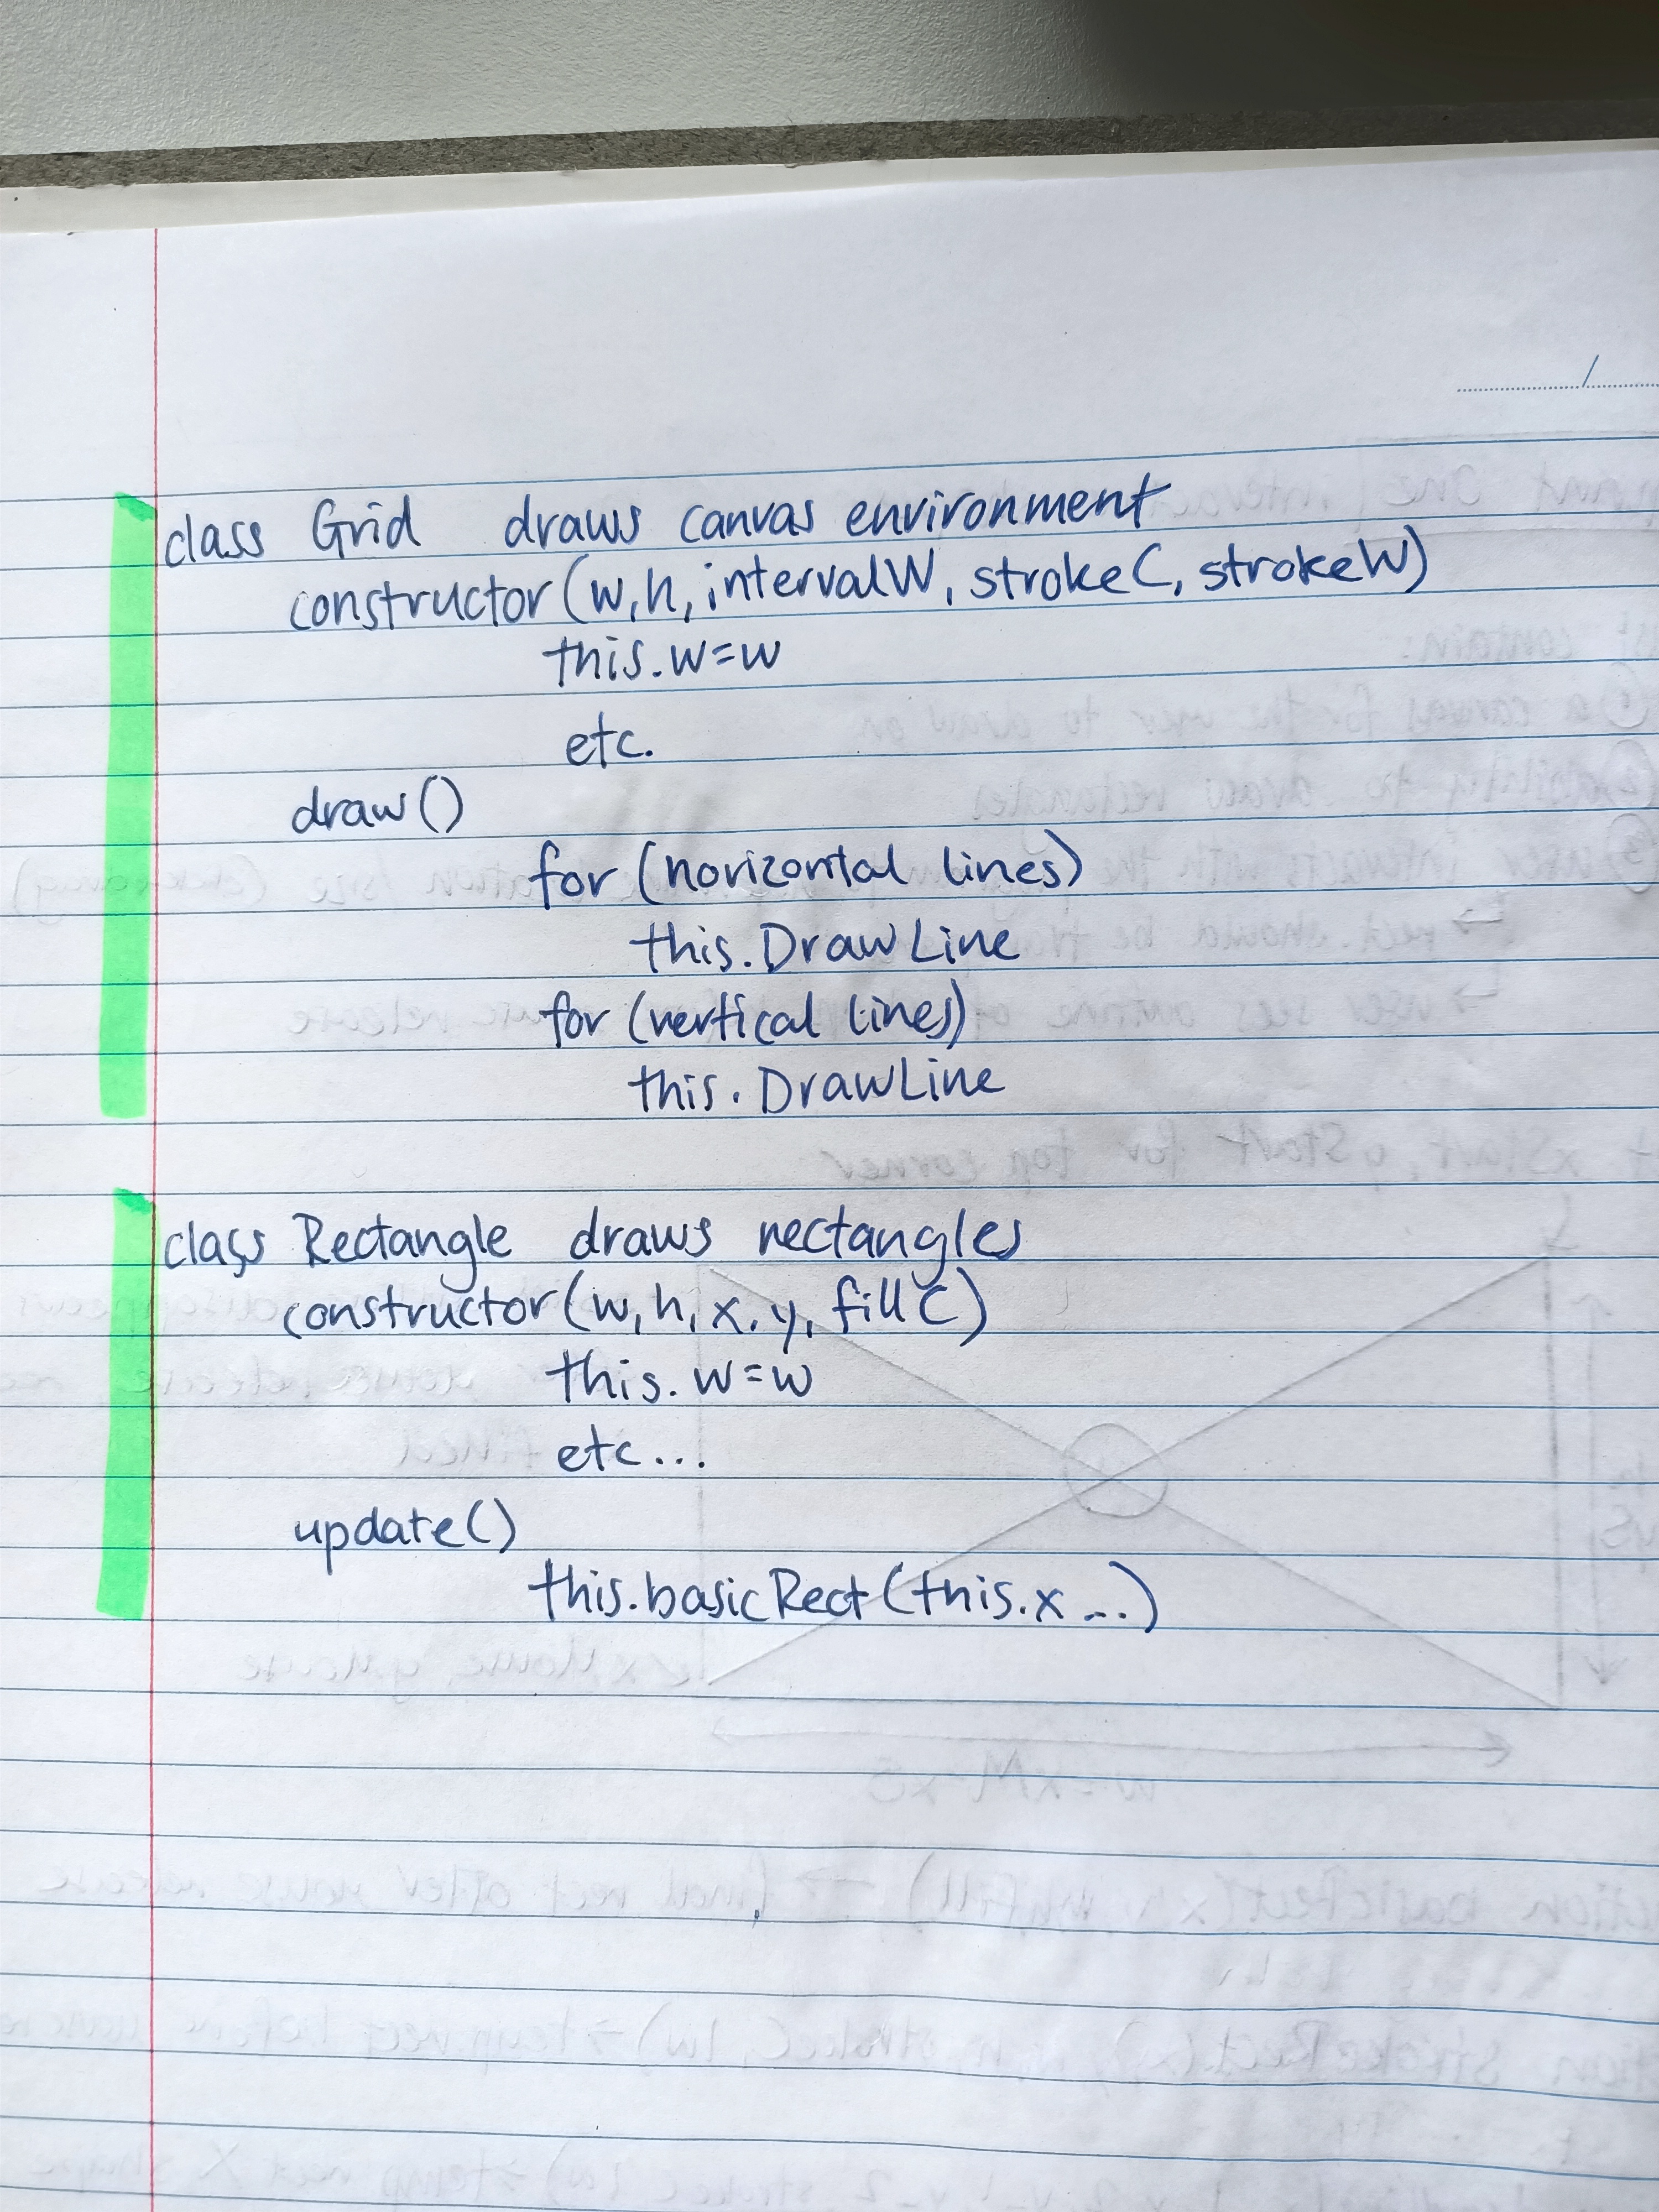 class Grid draws canvas environment
constructor(w,h,intervalW, strokeC, strokeW)
this.w=w
etc.
draw()
for (horizontal lines)
this.DrawLine
for (vertical lines)
this.DrawLine
class Rectangle draws rectangles
constructor(w,h,x,y,fillC)
this.w=w
etc...
update()
this.basicRect(this.x...)